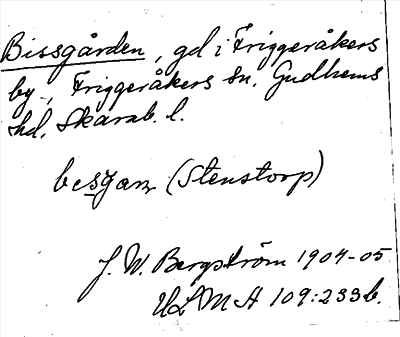 Bissgården, gd i Friggeråkers
by, Friggeråkers sn. Gudhems
hd. Skarab. l.
(Stenstorp)
J. W. Bergström 1904-05
ULMA 109:233b.